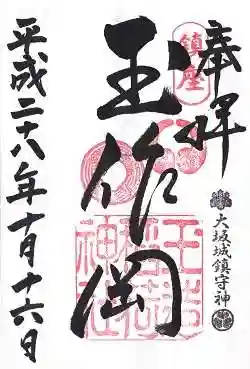 奉拝
鎮座
大坂城鎮守神
玉作岡
玉造
稲荷
神社
平成二十八年十月十六日